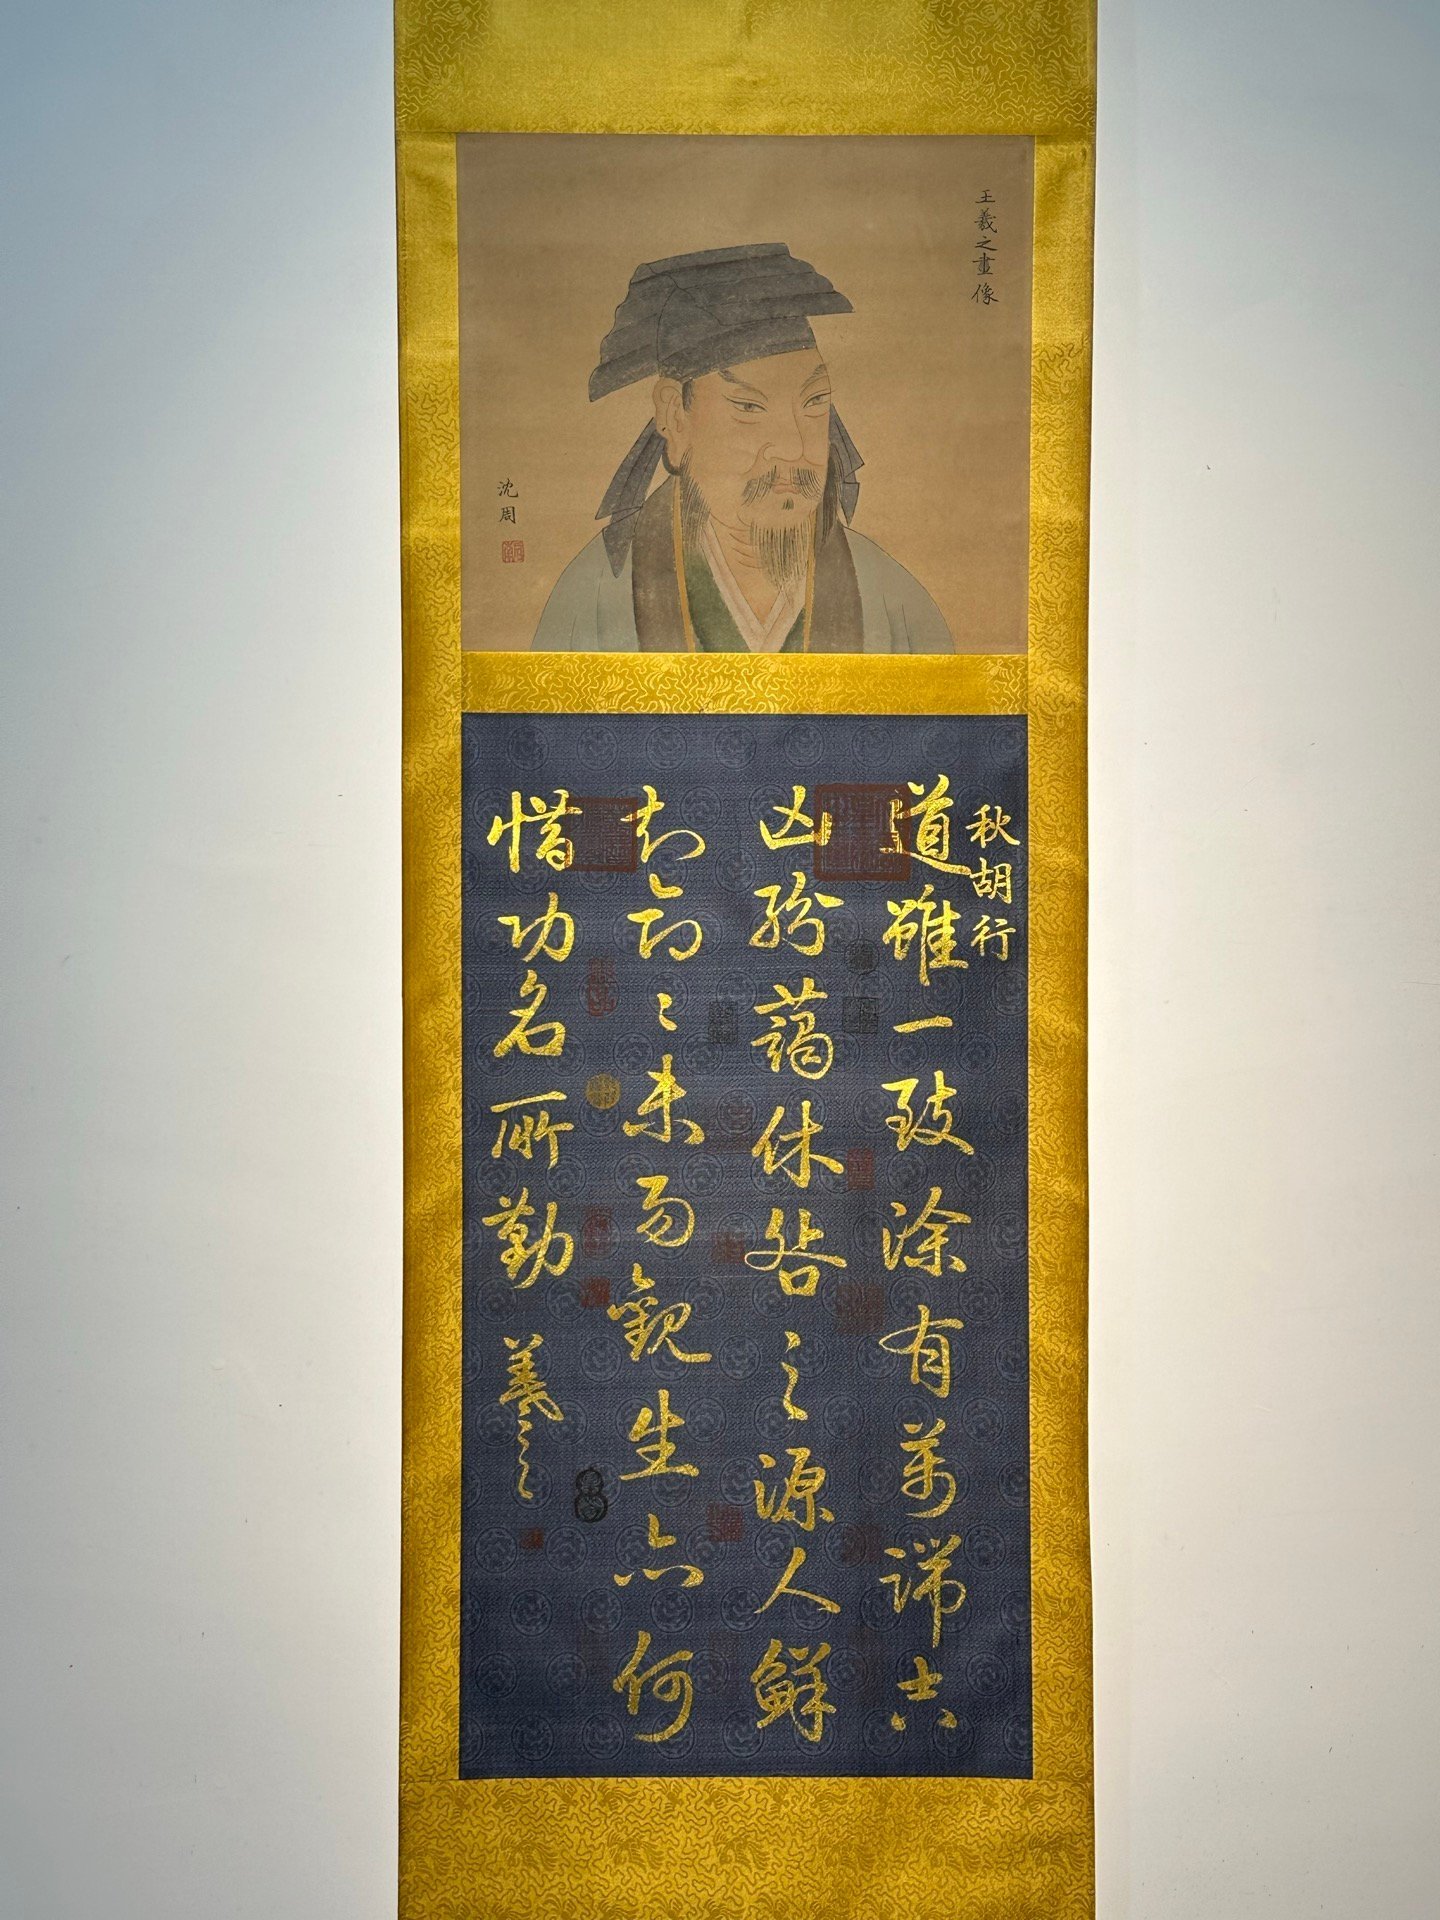 王羲之畫像
沈周
秋胡行
道雖一致涂有萬端吉
凶紛藹休咎之源人鮮
知命〻未易觀生亦何
惜功名所勤 羲之